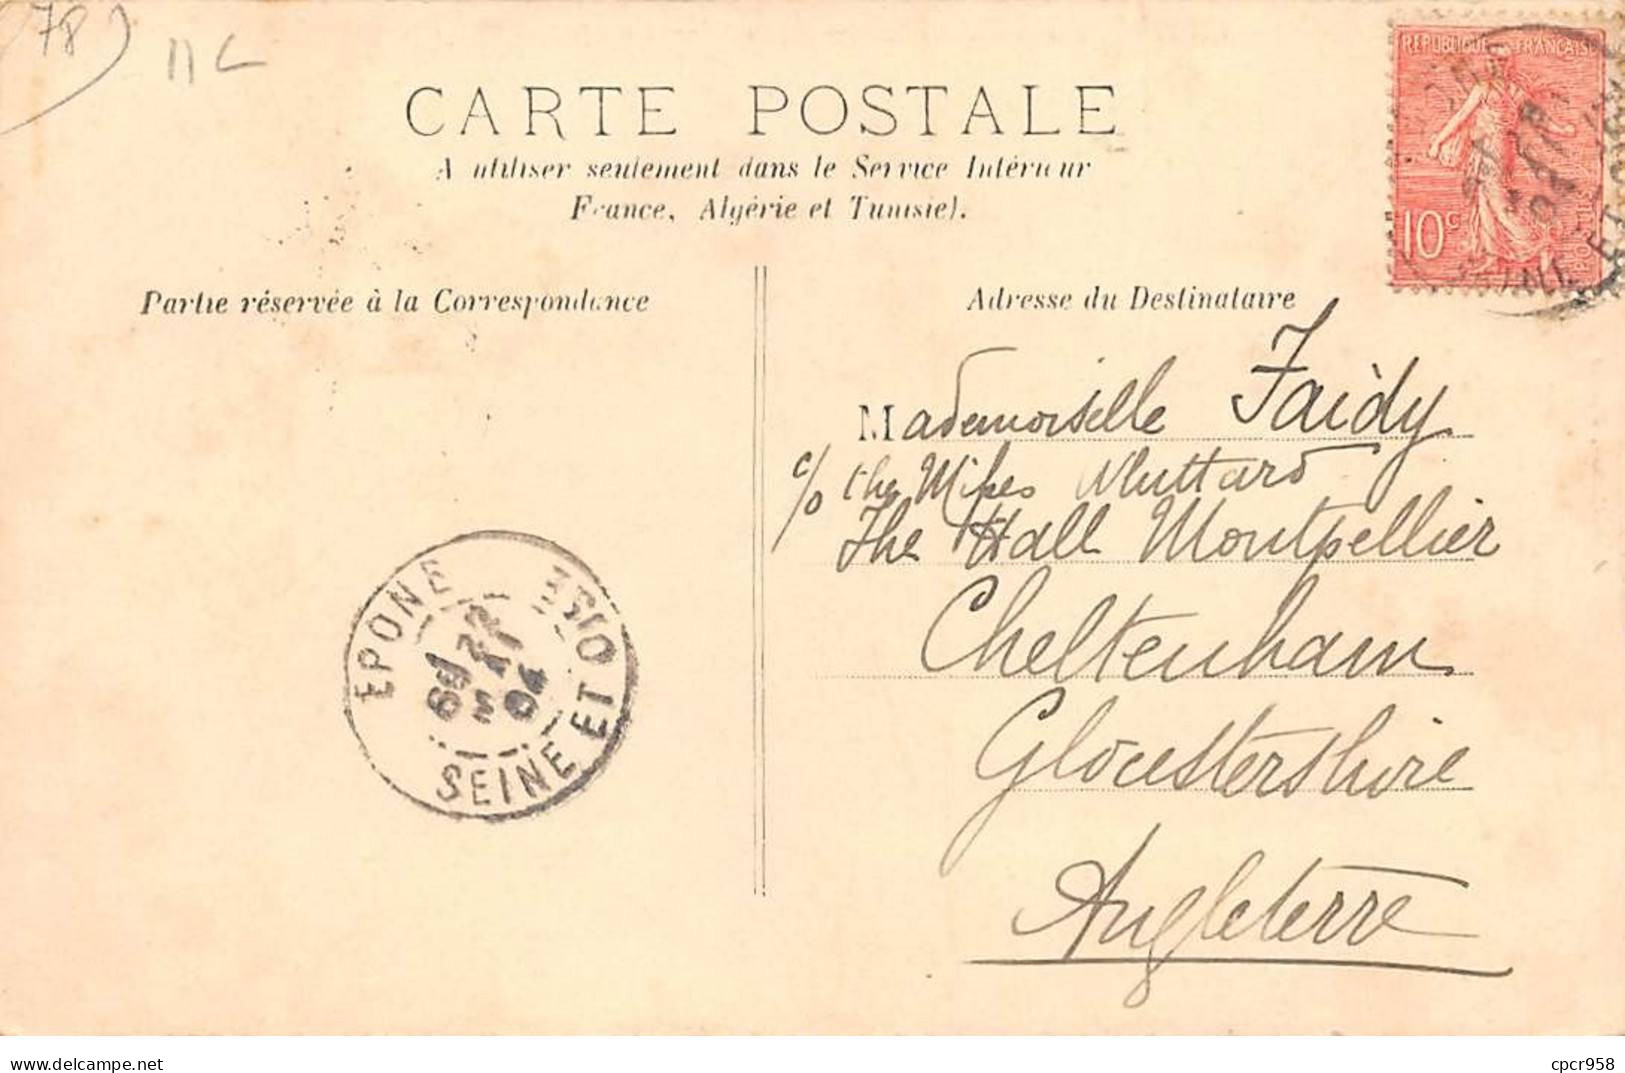 78
CARTE POSTALE
A utiliser seulement dans le Service Intérieur
France, Algérie et Tunisie).
REPUBLIQUE FRANÇAISE
10c
POSTES
Partie réservée à la Correspondance
Adresse du Destinataire
Mademoiselle Faidy
c/o the Misses
The Hall Montpellier
Cheltenham
Glocestershire
Angleterre
EPONE
SEINE ET OISE
04
delcampe.net
cpcr958